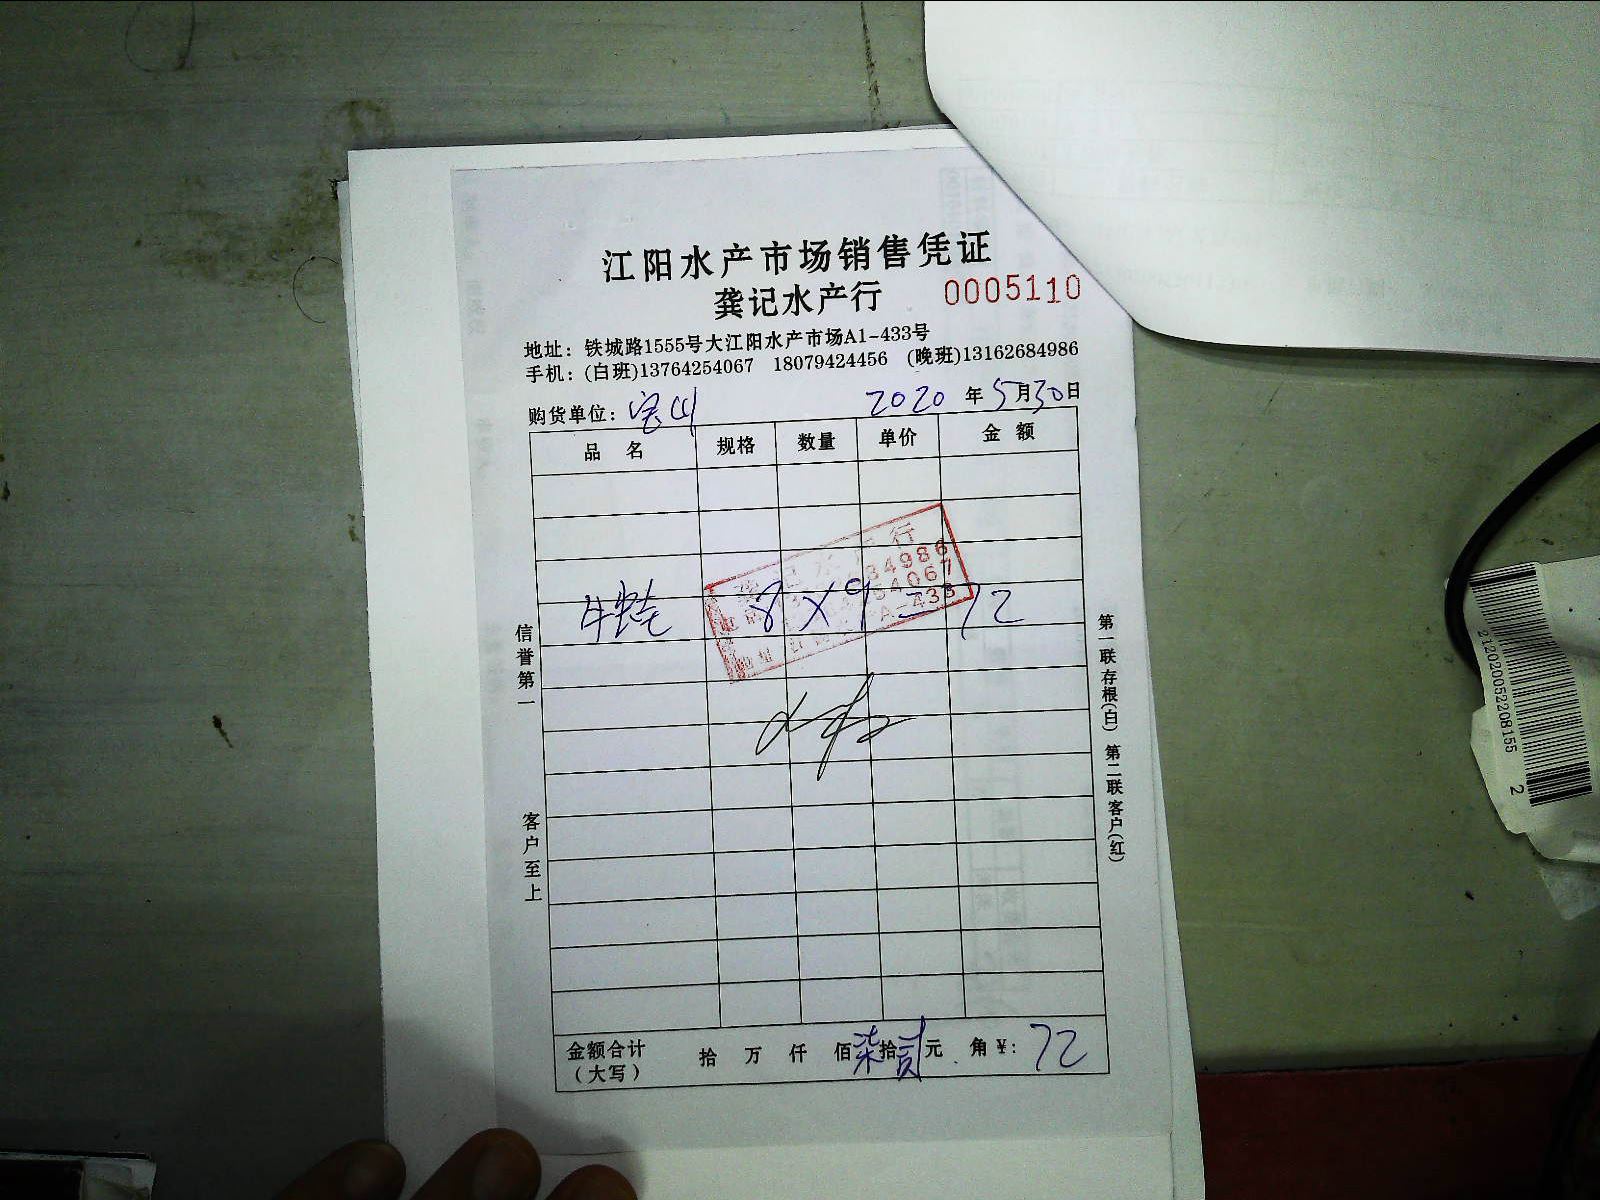 江阳水产市场销售凭证
龚记水产行 0005110
地址：铁城路1555号大江阳水产市场A1-433号
手机：(白班)13764254067 18079424456 (晚班)13162684986
购货单位：宝山 2020 年 5 月 30 日
品 名 规格 数量 单价 金 额
记水 行
34986
54067
A-433
牛蛙 8 X 9 = 72
信誉第一
客户至上
第一联存根(白) 第二联客户(红)
金额合计 拾 万 仟 佰 柒 拾 贰 元 角 ¥: 72
(大写)
2120200522208155 2